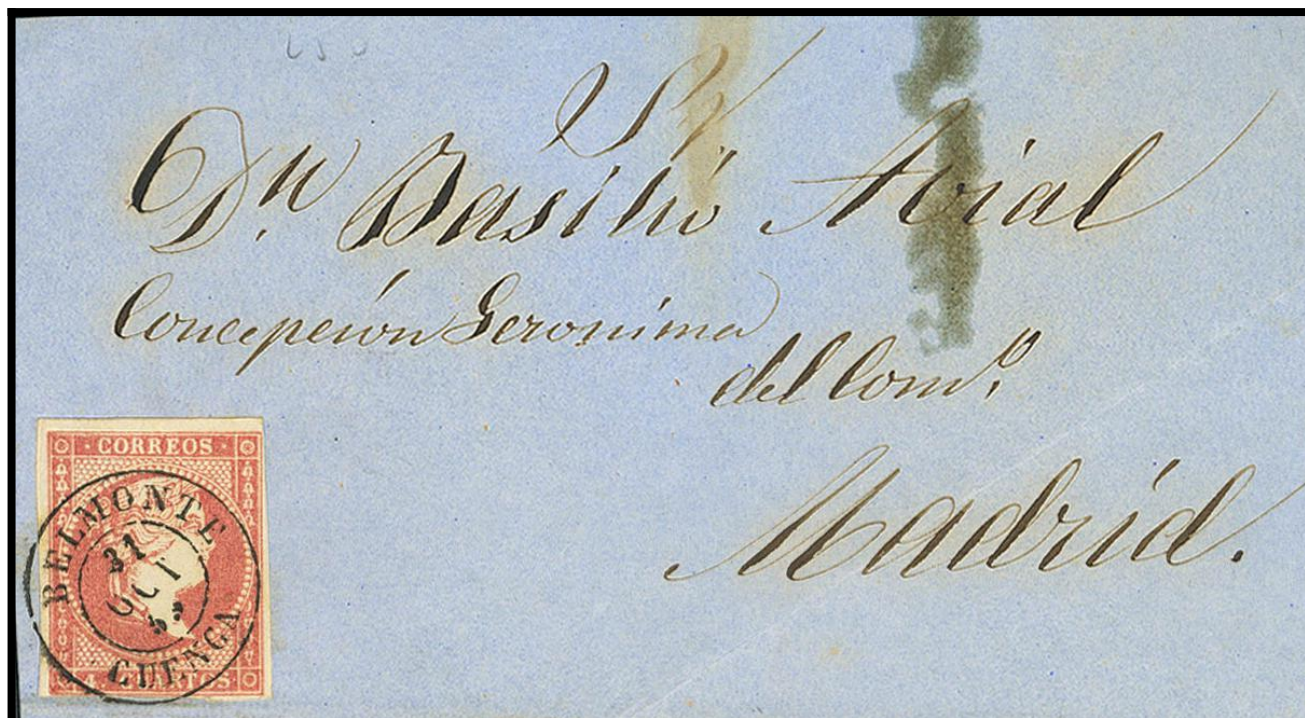 Sr
Dn Basilio Avial
Concepción Geronima
del Como.
Madrid.
CORREOS
BELMONTE
31
OCT
CUENCA
4 CUARTOS